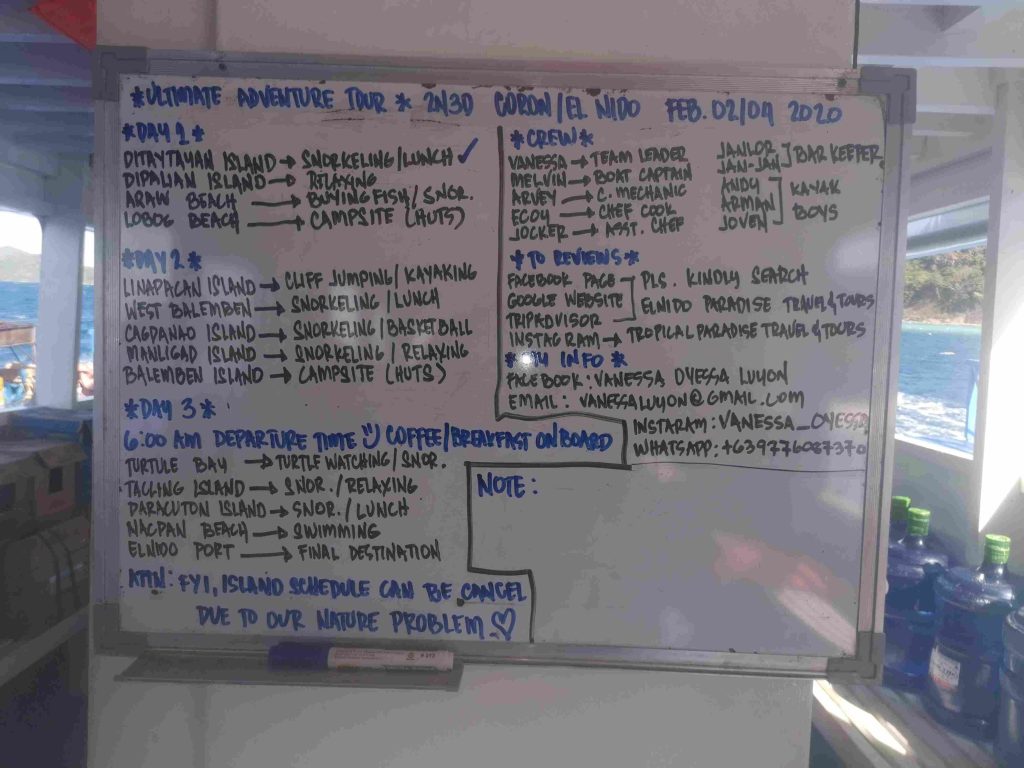 *ULTIMATE ADVENTURE TOUR * 2N3D CORON/EL NIDO FEB. 02/04 2020
*DAY 1*
DITAYTAYAN ISLAND → SNORKELING/LUNCH ✓
DIPALIAN ISLAND → RELAXING
ARAW BEACH → BUYING FISH/SNOR.
LOBOG BEACH → CAMPSITE (HUTS)
*DAY 2*
LINAPACAN ISLAND → CLIFF JUMPING/KAYAKING
WEST BALEMBEN → SNORKELING/LUNCH
CAGPANAO ISLAND → SNORKELING/BASKETBALL
MANLIGAD ISLAND → SNORKELING/RELAXING
BALEMBEN ISLAND → CAMPSITE (HUTS)
*DAY 3*
6:00 AM DEPARTURE TIME COFFEE/BREAKFAST ON BOARD
TURTULE BAY → TURTLE WATCHING/SNOR.
TACLING ISLAND → SNOR./RELAXING
DARACUTON ISLAND → SNOR./LUNCH
NACPAN BEACH → SWIMMING
ELNIDO PORT → FINAL DESTINATION
ATTN: FYI, ISLAND SCHEDULE CAN BE CANCEL
DUE TO OUR NATURE PROBLEM ♡
*CREW*
VANESSA → TEAM LEADER
MELVIN → BOAT CAPTAIN
ARVEY → C. MECHANIC
ECOY → CHEF COOK
JOCKER → ASST. CHEF
JANLOR
JAN-JAN ] BAR KEEPER
ANDY
ARMAN ] KAYAK
JOVEN BOYS
*TO REVIEWS*
FACEBOOK PAGE PLS. KINDLY SEARCH
GOOGLE WEBSITE ELNIDO PARADISE TRAVEL & TOURS
TRIPADVISOR
INSTAGRAM → TROPICAL PARADISE TRAVEL & TOURS
*MY INFO *
FACEBOOK: VANESSA OYESSA LUYON
EMAIL: VANESSALUYON@GMAIL.COM
INSTARAM: VANESSA_OYESSA
WHATSAPP: +639776087370
NOTE: